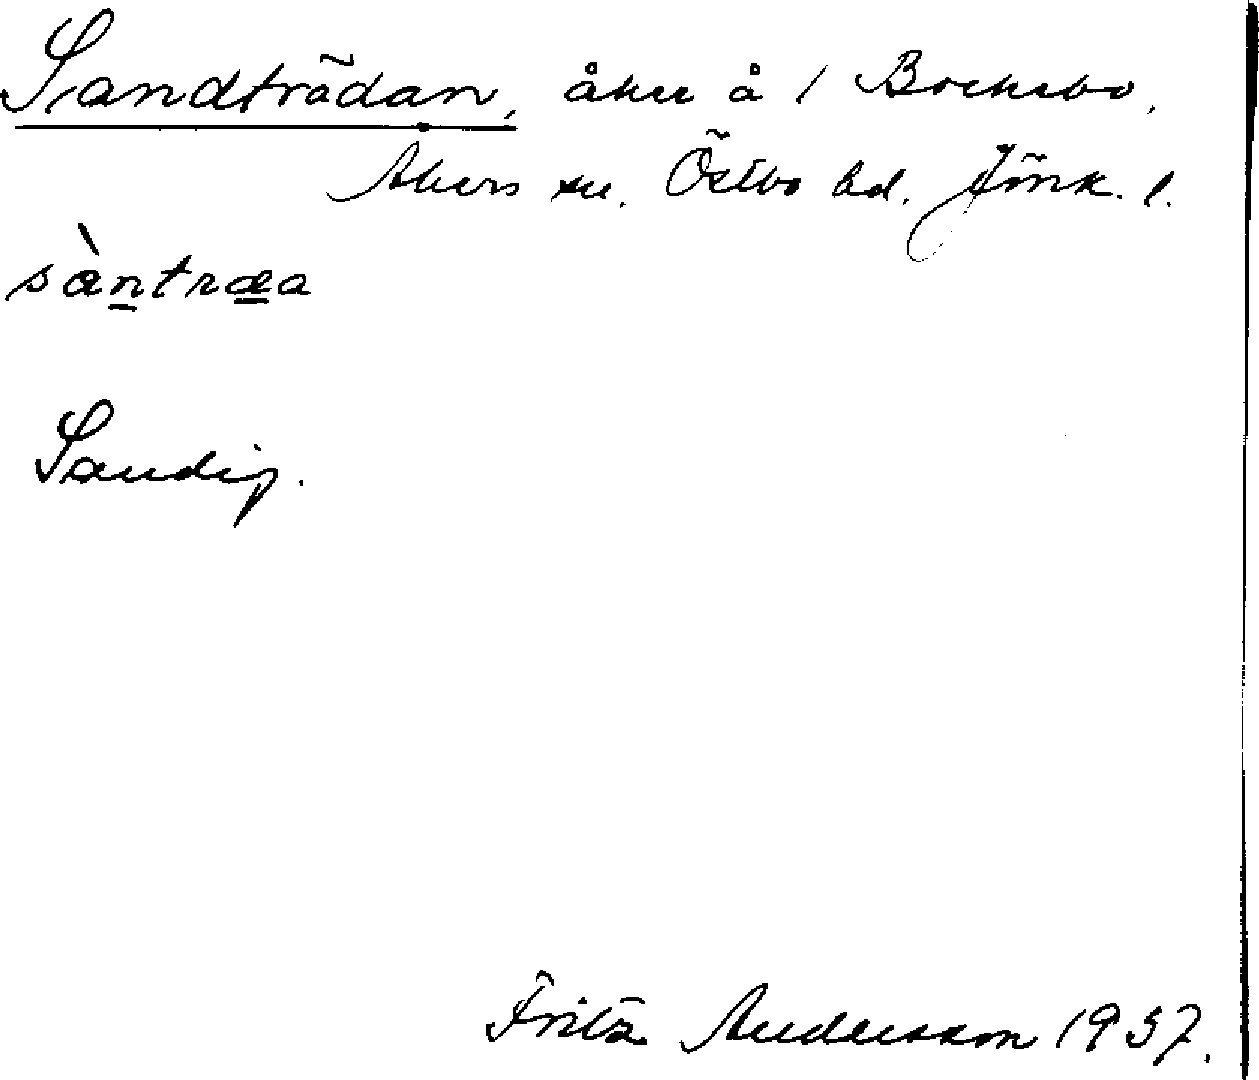 Sandträdan, åker å 1 Bockebo,
Akers sn. Östbo hd. Jönk. l.
sàntræa
Sandig.
Fritz Andersson 1937.